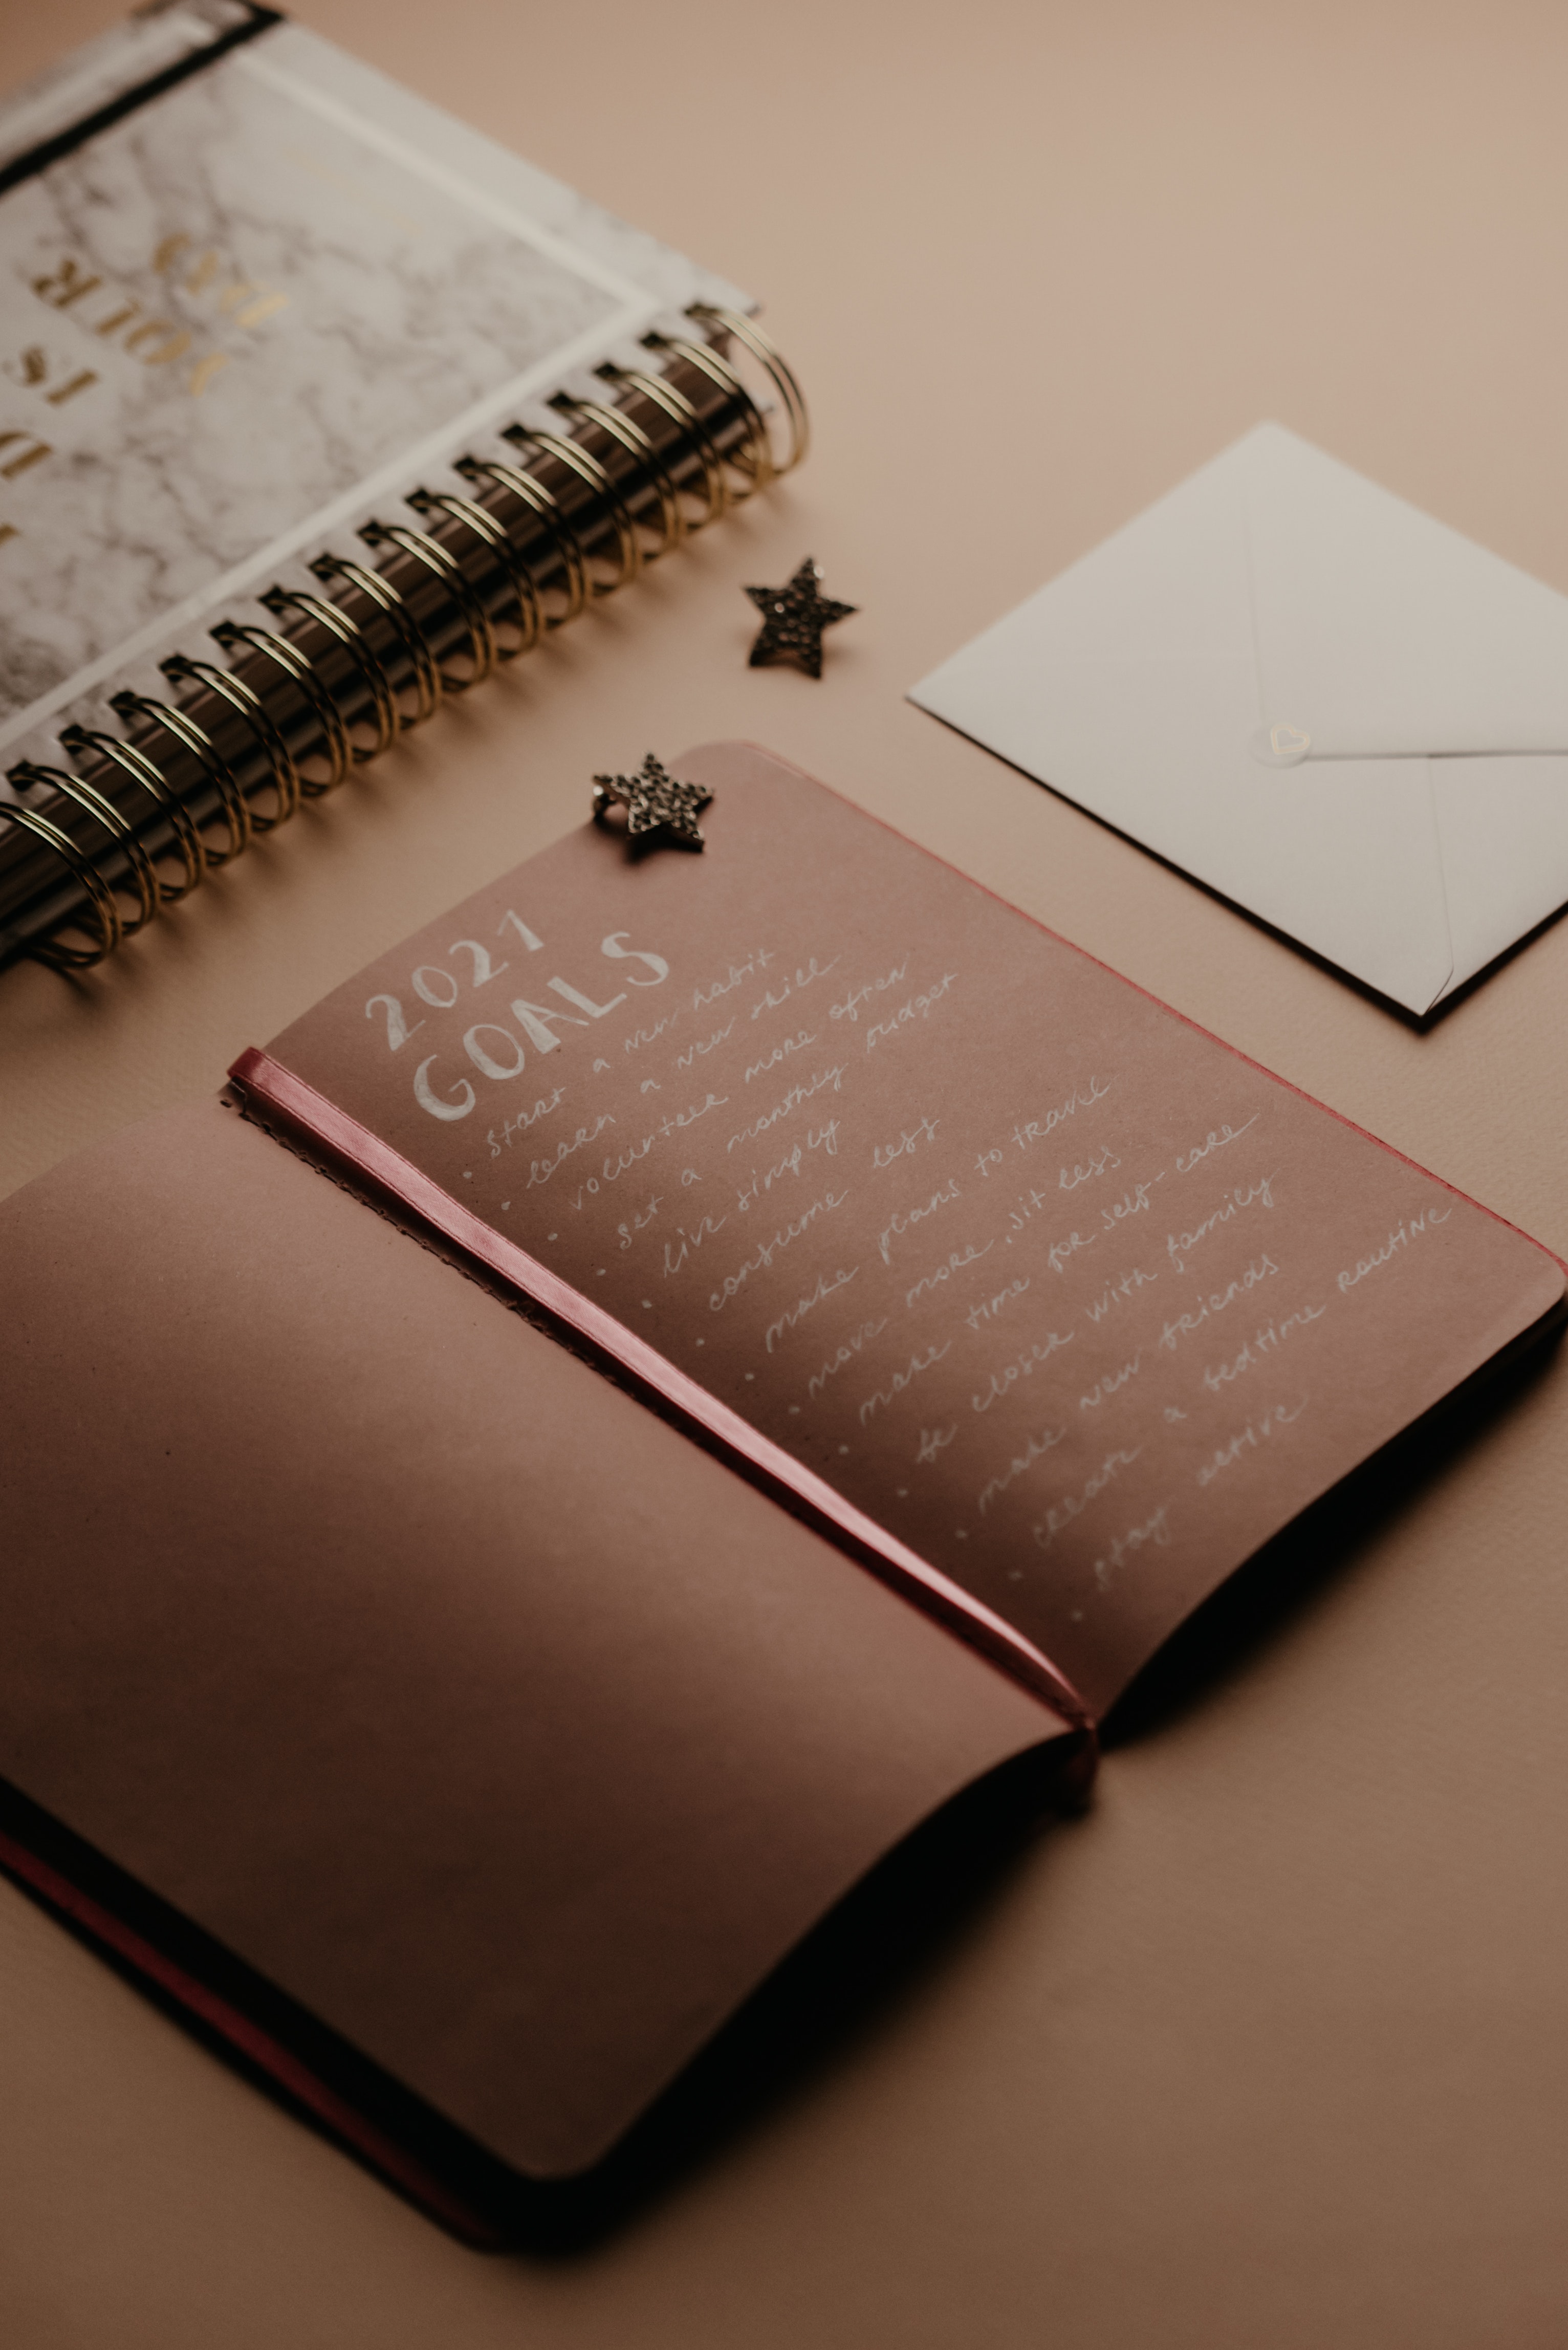 YOUR
IS
2021
GOALS
• start a new habit
• learn a new skill
• volunteer more often
• set a monthly budget
• live simply
• consume less
• make plans to travel
• move more, sit less
• make time for self-care
• be closer with family
• make new friends
• create a bedtime routine
• stay active